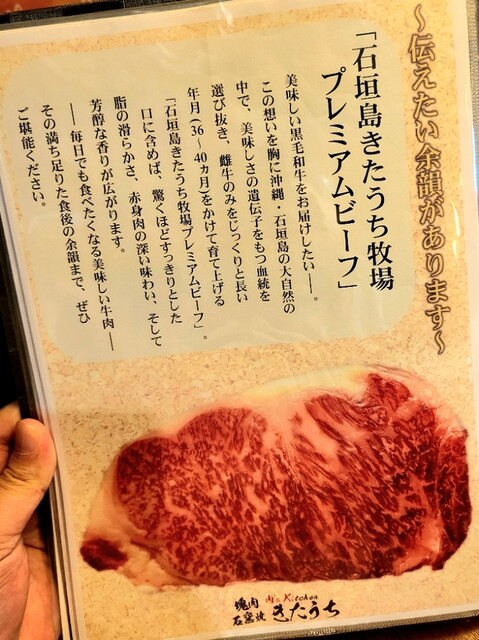 ～伝えたい余韻があります～
「石垣島きたうち牧場
プレミアムビーフ」
美味しい黒毛和牛をお届けしたい――。
この想いを胸に沖縄・石垣島の大自然の
中で、美味しさの遺伝子をもつ血統を
選び抜き、雌牛のみをじっくりと長い
年月(36～40ヵ月)をかけて育て上げる
「石垣島きたうち牧場プレミアムビーフ」。
口に含めば、驚くほどすっきりとした
脂の滑らかさ、赤身肉の深い味わい、そして
芳醇な香りが広がります。
―― 毎日でも食べたくなる美味しい牛肉 ――
その満ち足りた食後の余韻まで、ぜひ
ご堪能ください。
塊肉
石窯焼
肉's Kitchen
きたうち